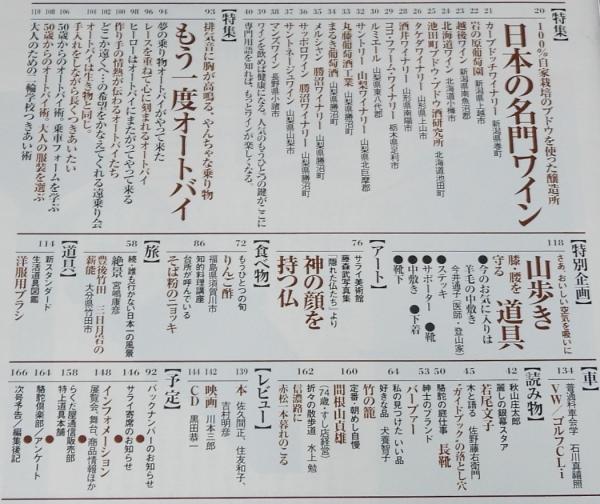 【特集】
20
100%自家栽培のブドウを使った醸造所
日本の名門ワイン
21 カーブドッチワイナリー 新潟県巻町
22 岩の原葡萄園 新潟県上越市
越後ワイン 新潟県南魚沼郡
北海道ワイン 北海道小樽市
池田町ブドウ・ブドウ酒研究所 北海道池田町
タケダワイナリー 山形県上山市
酒井ワイナリー 山形県南陽市
ココ・ファーム・ワイナリー 栃木県足利市
ルミエール 山梨県東八代郡
サントリー 山梨ワイナリー 山梨県北巨摩郡
丸藤葡萄酒工業 山梨県勝沼町
まるき葡萄酒 山梨県勝沼町
メルシャン 勝沼ワイナリー 山梨県勝沼町
サッポロワイン 勝沼ワイナリー 山梨県勝沼町
サントネージュワイン 山梨県山梨市
マンズワイン 長野県小諸市
39 ワインを飲めば健康になる。人気のもうひとつの鍵がここに
40 専門用語を知れば、もっとワインが楽しくなる。
【特集】
93
排気音に胸が高鳴る、やんちゃな乗り物
もう一度オートバイ
94 夢の乗り物オートバイがやって来た
96 レースを重ねて心に刻まれるオートバイ
ヒーローはオートバイにまたがってやって来る
作り手の情熱が伝わるオートバイたち
どこか遠くへ…の希望をかなえてくれる遠乗り会
オートバイは生き物と同じ。
手入れをしながら長くつきあいたい
50歳からのオートバイ術。乗車フォームを学ぶ
50歳からのオートバイ術。大人の服装を選ぶ
大人のための二輪学校つきあい術
【特別企画】
118
さあ、おいしい空気を吸いに
山歩き
膝・腰を守る道具
●今のお気に入りは
羊毛の中敷き
今井通子(医師・登山家)
●ステッキ
●サポーター ●靴
●中敷き ●下着
●靴下
【アート】
76
サライ美術館
藤森武写真集
「隠れた仏たち」より
神の顔を持つ仏
【食べ物】
72
もうひとつの旬
りんご酢
福島県須賀川市
86
知的料理講座
台所が呼んでいる
そば粉のニョッキ
【旅】
58
続・誰も行かない日本一の風景
絶景 宮嶋康彦
豊後竹田 三日月岩の新能 大分県竹田市
【道具】
114
新スタンダード
生活道具図鑑
洋服用ブラシ
【車】
134
普通科車会学 石川真禧照
VW/ゴルフCLi
【読み物】
42
秋山庄太郎
麗しの銀幕スタア
若尾文子
45
木と語る 佐野藤右衛門
“ガイドブック”の落とし穴
50
駱駝の庭仕事 長靴
53
紳士のブランド
バーブァー
64
私の見つけた いい品
好きな品 犬養智子
竹の籠
160
定番・朝めし自慢
間根山貞雄
(74歳・すし店経営)
162
折々の散歩道 水上勉
信濃路に
赤松一本暮れのこる
【レビュー】
139
本 佐久間正、住友和子、
吉村明彦
142
映画 川本三郎
144
CD 黒田恭一
【予定】
92
バックナンバーのお知らせ
146
サライ寄席のお知らせ
148
インフォメーション
展覧会、舞台、商品情報ほか
158
らくだ屋通信販売部
特上道具本舗
164
駱駝倶楽部/アンケート
166
次号予告/編集後記